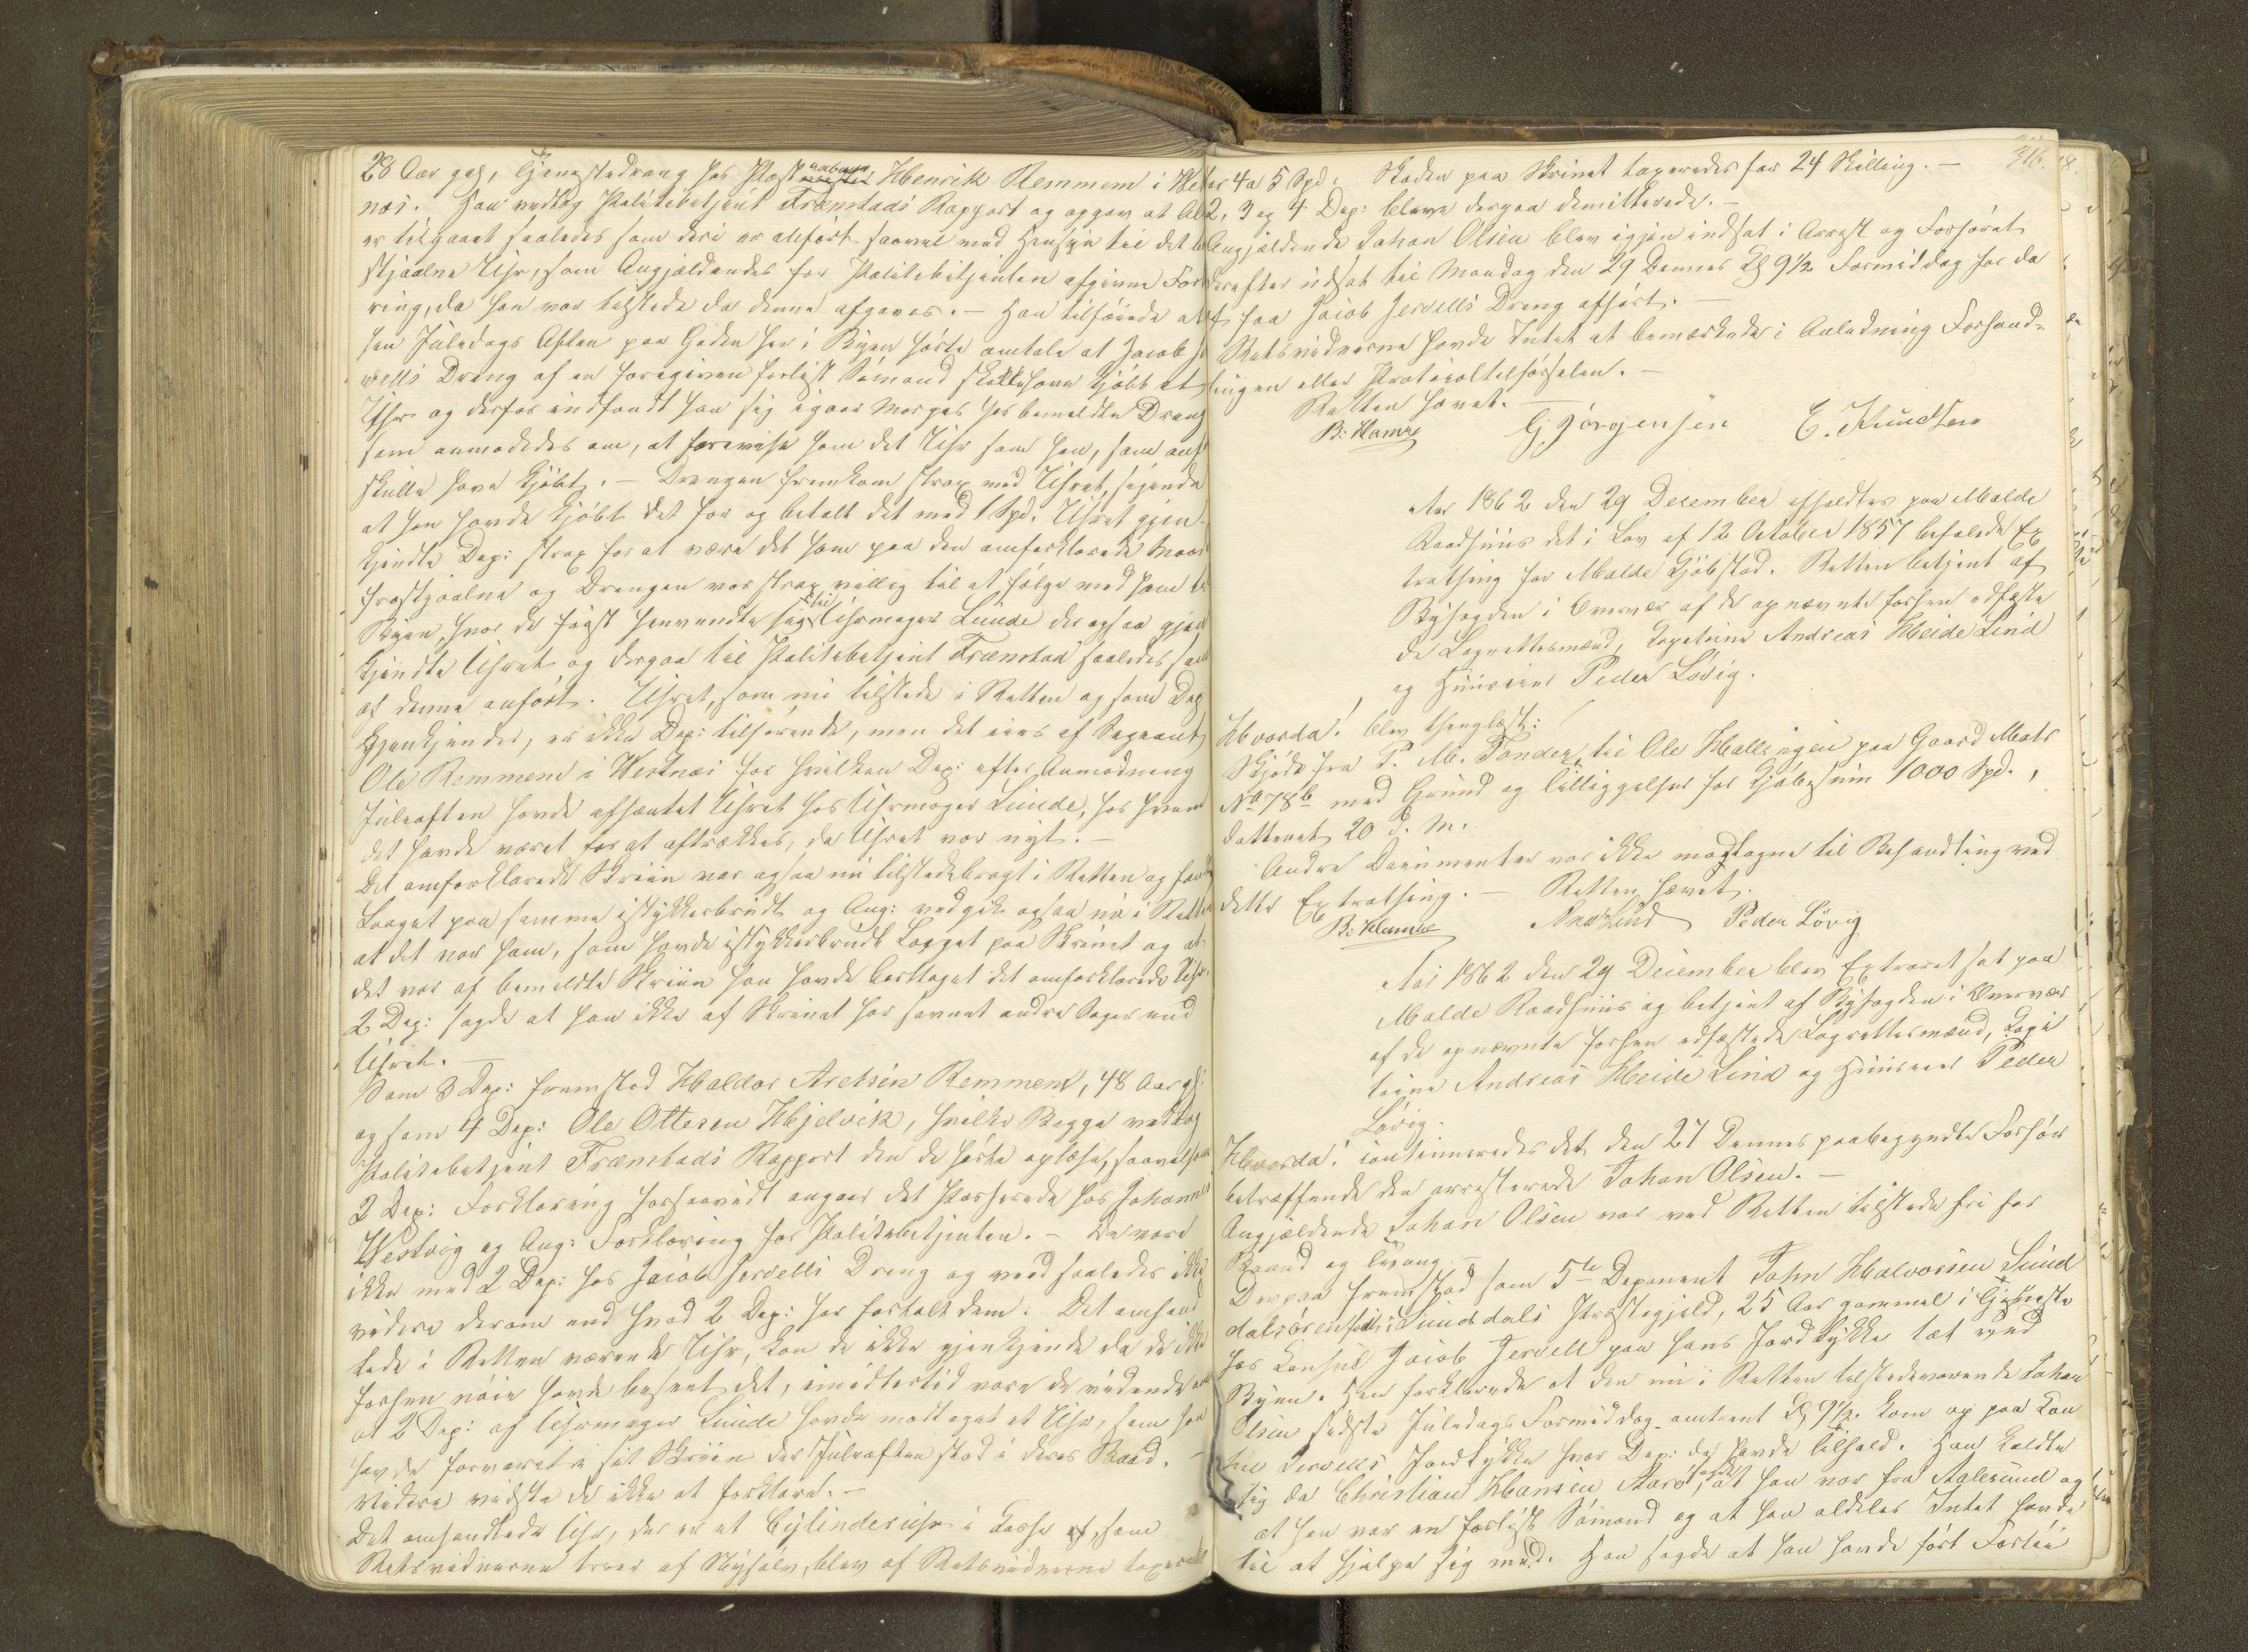 28 Aar gl, Tjenestedreng hos Henrik Remmem i
næs. Han vedtog Politibetjent Fræmstads Rapport og opgav at
er tilgaaet saaledes som deri er anført saavel med Hensyn til det
stjaalne Uhr, som Angjældendes for Politibetjenten afgivne For
ring, da han var tilstede da denne afgaves. – Han tilføiede at
han Juledags Aften paa Gaden her i Byen hørte omtale at Jacob
vells Dreng af en foregiven forlist Sømand skulde have kjøbt et
Uhr og derfor indfandt han sig igaar Morges hos bemeldte Dreng
som anmodedes om, at forevise ham det Uhr som han, som
skulde have kjøbt. – Drengen fremkom strax med Uhret, sigende
at han havde kjøbt det for og betalt det med 1 Spd. Uhret gjen-
kjendte Dep: strax for at være det ham paa den omforklarede Maade
frastjaalne og Drengen var strax villig til at følge med ham til
Byen, hvor de først henvendte sig til Uhrmager Lunde der ogsaa gjen
kjendte Uhret og derpaa til Politibetjent Fræmstad saaledes som
af denne anført. Uhret, som nu tilstede i Retten og som Dep
gjenkjender, er ikke Dep: tilhørende, men det eies af Sergeant
Ole Remmem i Westnæs for hvilken Dep: efter Anmodning
Juleaften havde afhæntet Uhret hos Uhrmager Lunde, hos hvem
det havde været for at aftrækkes, da Uhret var nyt. –
Det omforklarede Skriin var ogsaa nu tilstedebragt i Retten og fandtes
Laaget paa samme istykkerbrudt og Ang: vedgik ogsaa nu i Retten
at det var ham, som havde istykkerbrudt Laaget paa Skrinet og at
det var af bemeldte Skriin han havde borttaget det omforklarede Uhr.
2 Dep: sagde at han ikke af Skrinet har savnet andre Sager end
Uhret. –
Som 3 Dep: fremstod Haldor Aretsen Remmem, 48 Aar gl:
og som 4 Dep: Ole Ottesen Hjelvik, hvilke Begge vedtog
Politibetjent Fræmstads Rapport den de hørte oplæse, saavelsom
2 Dep: Forklaring forsaavidt angaar det Passerede hos Johannes
Westvig og Ang: Forklaring for Politibetjenten. – De vare
ikke med 2 Dep: hos Jacob Jervells Dreng og veed saaledes ikke
videre derom end hvad 2 Dep: har fortalt dem. Det omhand
lede i Retten værende Uhr, kan de ikke gjenkjende da de ikke
forhen nøie havde beseet det, imidlertid vare de vidende om
at 2 Dep: af Uhrmager Lunde havde modtaget et Uhr, som han
havde forvaret i sit Skriin der Juleaften stod i deres Baad. –
Videre vidste de ikke at forklare. –
Det omhandlede Uhr, der er et Cylinderuhr i Kasse af, som
Retsvidnerne troer af Nysølv, blev af Retsvidnerne taxeret
316.
for 4 a 5 Spd. Skaden paa Skrinet taxeredes for 24 Skilling. –
2, 3 og 4 Dep: bleve derpaa dimitterede. –
Angjældende Johan Olsen blev igjen indsat i Arrest og Forhøret
derefter udsat til Mandag den 29 Dennes Kl 9½ Formiddag for da
at faa Jacob Jervells Dreng afhørt. –
Retsvidnerne havde Intet at bemærke i Anledning Forhand-
lingen eller Protocoltilførselen. –
Retten hævet. –
B: Hamre G. Jörgensen E. Knudsen
Aar 1862 den 29 December afholdtes paa Molde
Raadhuus det i Lov af 12 October 1857 befalede Ex
trathing for Molde Kjøbstad. Retten betjent af
Byfogden i Overvær af de opnævnte forhen edfæste
de Lagrettesmænd, Capitaine Andreas Heide Lind
og Huuseier Peder Lövig.
Hvorda! blev thinglæst:
Skjøde fra P. M. Tönder til Ole Hallingen paa Gaard Matr
No 78b med Grund og Tilliggelser for Kjøbesum 1000 Spd.,
datteret 20 d. M.
Andre Documenter var ikke modtagne til Behandling ved
dette Extrathing. – Retten hævet.
B: Hamre And Lind Peder Lövig
Aar 1862 den 29 December blev Extraret sat paa
Molde Raadhuus og betjent af Byfogden i Overvær
af de opnævnte forhen edfæstede Lagrettesmænd, Capi
taine Andreas Heide Lind og Huuseier Peder
Lövig.
Hvorda! continueredes det den 27 Dennes paabegyndte Forhør
betræffende den arresterede Johan Olsen. –
Angjældende Johan Olsen var ved Retten tilstede fri for
Baand og Tvang. –
Derpaa fremstod som 5te Deponent John Halvorsen Sund
dalsören i Sunddals Præstegjeld, 25 Aar gammel i Tjeneste
hos Konsul Jacob Jervell paa hans Jordstykke tæt ved
Byen. Han forklarede at den nu i Retten tilstedeværende Johan
Olsen sidste Juledags Formiddag omtrent Kl 9½ kom op paa Kon
sul Jervells Jordstykke hvor Dep: da havde Tilhold. Han kaldte
sig da Christian Hansen Aarö, at han var fra Aalesund og
at han var en forlist Sømand og at han aldeles Intet havde
til at hjælpe sig med. Han sagde at han havde ført Forlii